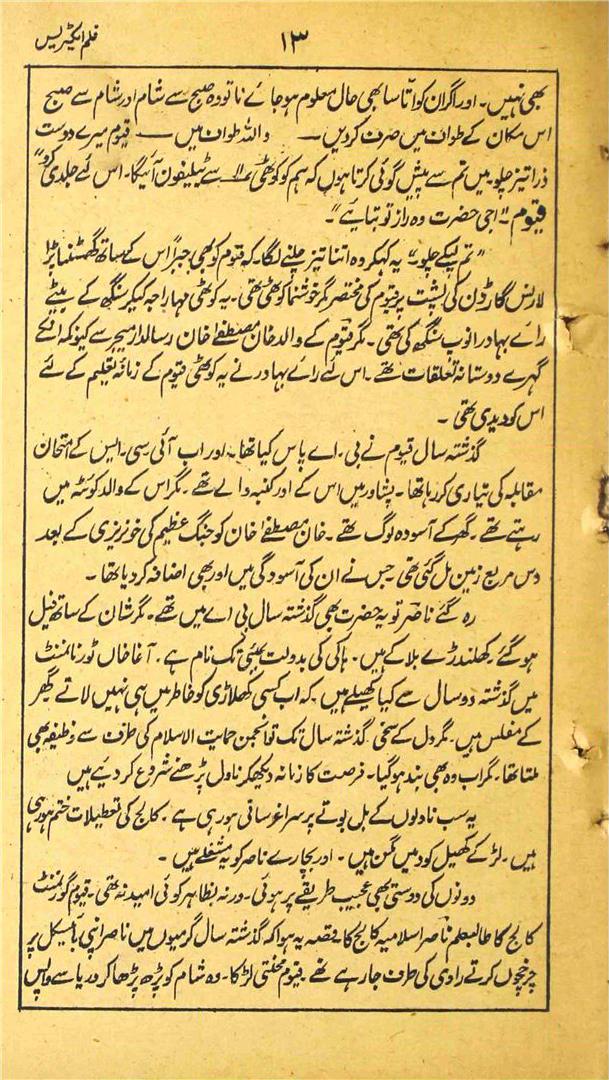 ۱۳
فلم ایکٹریس
بھی نہیں۔ اور اگر ان کو اتنا سا بھی حال معلوم ہو جائے نا تو وہ صبح سے شام اور شام سے صبح
اس مکان کے طوان میں صرف کر دیں۔ — واللہ طوان میں — قیوم میرے دوست
ذرا تیز چلو۔ میں تم سے پیش گوئی کرتا ہوں کہ ہم کو کوٹھی سے ٹیلیفون آئیگا۔ اس لئے جلدی کرو"
قیوم۔" اجی حضرت وہ راز تو بتایئے"۔
"تم لپکے چلو۔" یہ کہکر وہ اتنا تیز چلنے لگا۔ کہ قیوم کو بھی جبراً اس کے ساتھ گھسٹنا پڑا
لارنس گارڈن کی پشت پر قیوم کی مختصر مگر خوشنما کوٹھی تھی۔ یہ کوٹھی مہاراجہ کیکر سنگھ کے بیٹے
رائے بہادر انوپ سنگھ کی تھی۔ مگر قیوم کے والد خان مصطفےٰ خان رسالدار میجر سے کیونکہ انکے
گہرے دوستانہ تعلقات تھے۔ اس لئے رائے بہادر نے یہ کوٹھی قیوم کے زمانہ تعلیم کے لئے
اس کو دیدی تھی۔
گذشتہ سال قیوم نے بی۔ اے پاس کیا تھا۔ اور اب آئی۔سی۔ایس کے امتحان
مقابلہ کی تیاری کر رہا تھا۔ پشاور میں اس کے اور کنبہ والے تھے۔ مگر اس کے والد کوئٹہ میں
رہتے تھے۔ گھر کے آسودہ لوگ تھے۔ خان مصطفےٰ خان کو جنگ عظیم کی خونریزی کے بعد
دس مربع زمین مل گئی تھی۔ جس نے ان کی آسودگی میں اور بھی اضافہ کر دیا تھا۔
رہ گئے ناصر تو یہ حضرت بھی گذشتہ سال بی اے میں تھے۔ مگر شان کے ساتھ فیل
ہو گئے۔ کھلنڈرے بلا کے ہیں۔ ہاکی کی بدولت بمبئی تک نام ہے۔ آغا خاں ٹورنامنٹ
میں گذشتہ دو سال سے کیا کھیلے ہیں۔ کہ اب کسی کھلاڑی کو خاطر میں ہی نہیں لاتے گھر
کے مفلس ہیں۔ مگر دل کے سخی۔ گذشتہ سال تک تو انجمن حمایت الاسلام کی طرف سے وظیفہ بھی
ملتا تھا۔ مگر اب وہ بھی بند ہو گیا۔ فرصت کا زمانہ دیکھکر ناول پڑھنے شروع کر دیئے ہیں
یہ سب ناولوں کے بل بوتے پر سراغرسانی ہو رہی ہے۔ کالج کی تعطیلات ختم ہو رہی
ہیں۔ لڑکے کھیل کود میں مگن ہیں۔ اور بچارے ناصر کو یہ مشغلے ہیں۔
دونوں کی دوستی بھی عجیب طریقے پر ہوئی۔ ورنہ بظاہر کوئی امید نہ تھی۔ قیوم گورنمنٹ
کالج کا طالبعلم ناصر اسلامیہ کالج کا۔ قصہ یہ ہوا کہ گذشتہ سال گرمیوں میں ناصر اپنی بائیسکل پر
چرخچوں کرتے راوی کی طرف جا رہے تھے۔ قیوم محنتی لڑکا۔ وہ شام کو پڑھ پڑھا کر دریا سے واپس